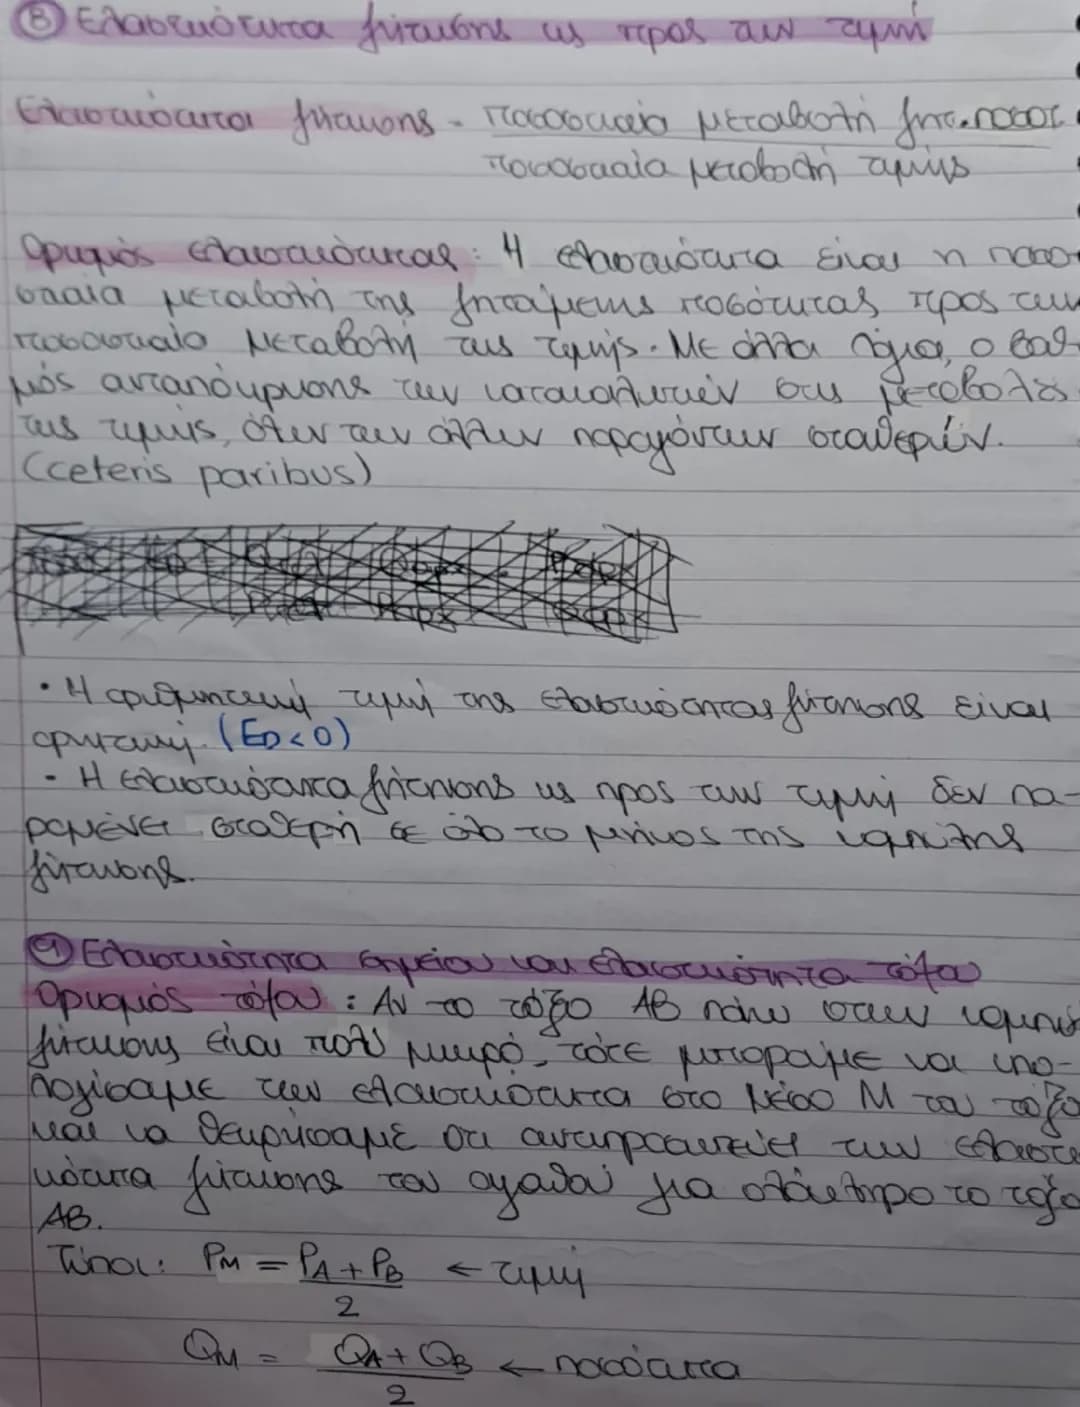 ⑧ Ελαστικότητα ζήτησης ως προς την τιμή
Ελαστικότητα ζήτησης = ποσοστιαία μεταβολή ζητ. ποσοτ.
ποσοστιαία μεταβολή τιμής
Ορισμός ελαστικότητας: Η ελαστικότητα είναι η ποσο-
στιαία μεταβολή της ζητούμενης ποσότητας προς την
ποσοστιαία μεταβολή της τιμής. Με άλλα λόγια, ο βαθ-
μός ανταπόκρισης των καταναλωτών στις μεταβολές
της τιμής, όλων των άλλων παραγόντων σταθερών.
(ceteris paribus)
• Η αριθμητική τιμή της ελαστικότητας ζήτησης είναι
αρνητική. (ED<0)
- Η ελαστικότητα ζήτησης ως προς την τιμή δεν πα-
ραμένει σταθερή σε όλο το μήκος της καμπύλης
ζήτησης.
⑨ Ελαστικότητα σημείου και ελαστικότητα τόξου
Ορισμός τόξου: Αν το τόξο ΑΒ πάνω στην καμπύλη
ζήτησης είναι πολύ μικρό, τότε μπορούμε να υπο-
λογίσουμε την ελαστικότητα στο μέσο Μ του τόξου
και να θεωρήσουμε ότι αντιπροσωπεύει την ελαστι-
κότητα ζήτησης του αγαθού για ολόκληρο το τόξο
ΑΒ.
Τύποι: PM = PA + PB ← τιμή
2
QM = QA + QB ← ποσότητα
2